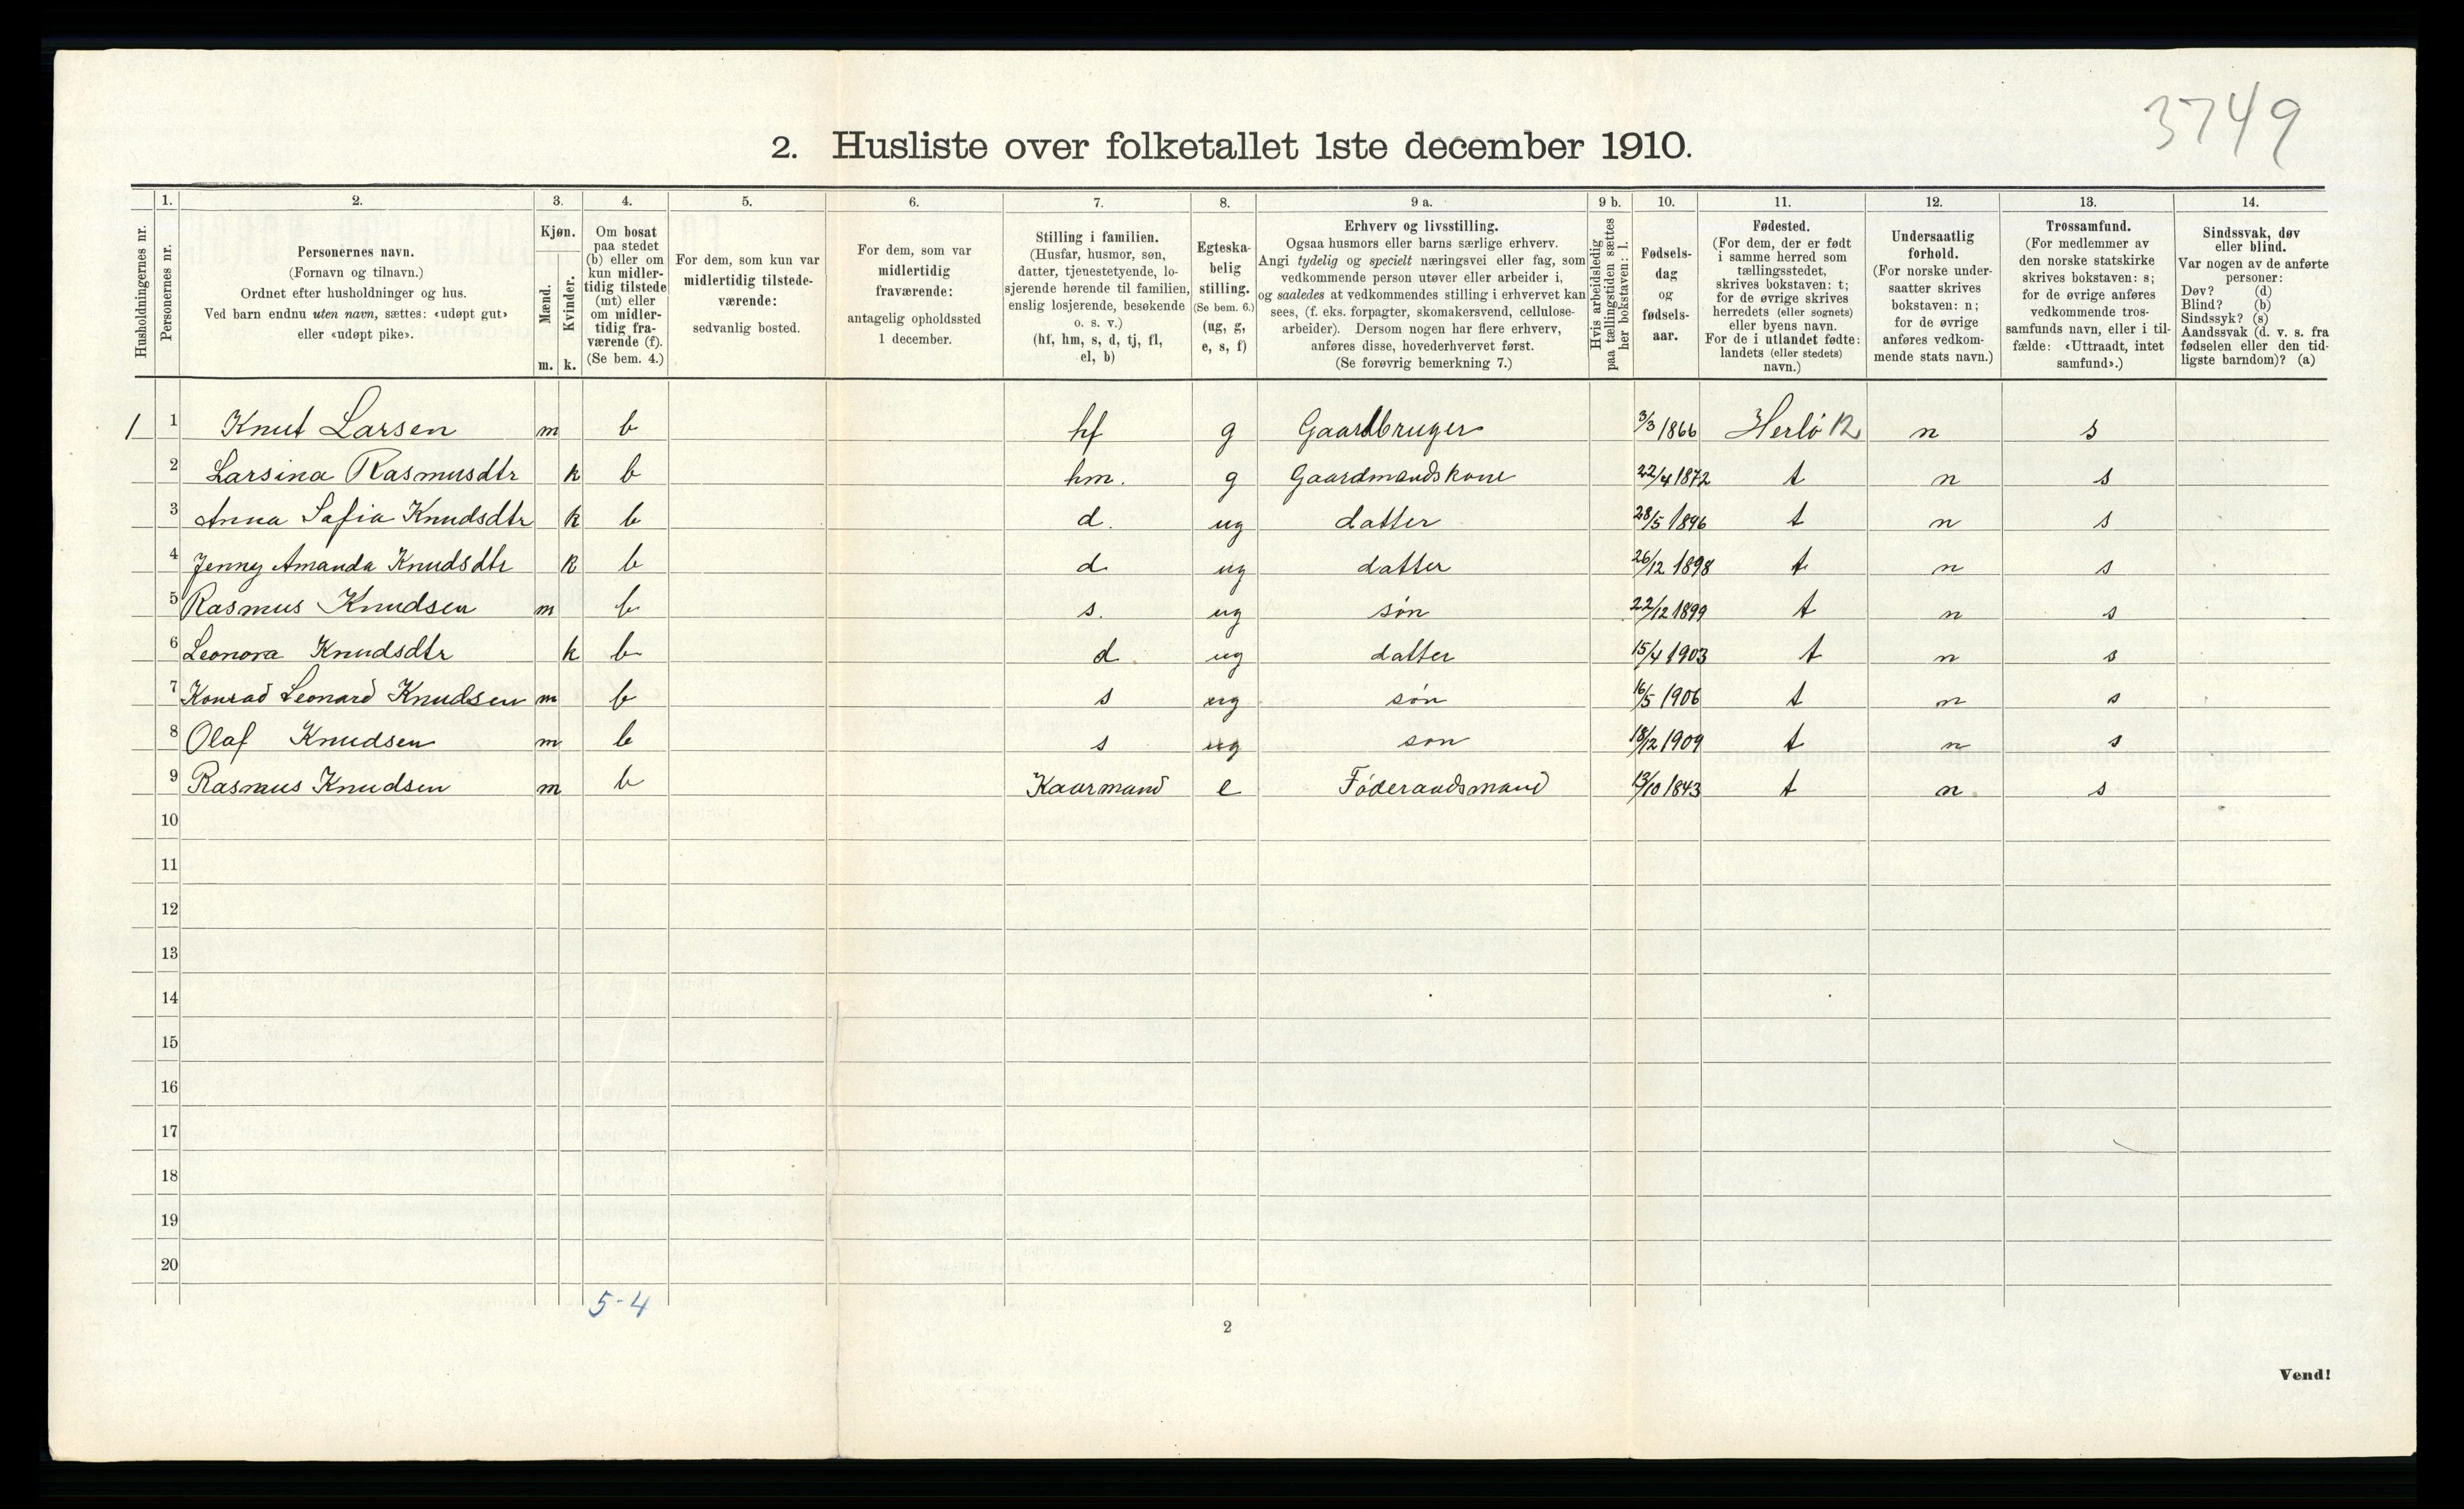 3749
2. Husliste over folketallet 1ste december 1910.
Husholdningernes nr.
1. Personernes nr.
2. Personernes navn.
(Fornavn og tilnavn.)
Ordnet efter husholdninger og hus.
Ved barn endnu uten navn, sættes: «udøpt gut»
eller «udøpt pike».
3. Kjøn.
Mænd. m.
Kvinder. k.
4. Om bosat
paa stedet
(b) eller om
kun midler-
tidig tilstede
(mt) eller
om midler-
tidig fra-
værende (f).
(Se bem. 4.)
5. For dem, som kun var
midlertidig tilstede-
værende:
sedvanlig bosted.
6. For dem, som var
midlertidig
fraværende:
antagelig opholdssted
1 december.
7. Stilling i familien.
(Husfar, husmor, søn,
datter, tjenestetyende, lo-
sjerende hørende til familien,
enslig losjerende, besøkende
o. s. v.)
(hf, hm, s, d, tj, fl,
el, b)
8. Egteska-
belig
stilling.
(Se bem. 6.)
(ug, g,
e, s, f)
9 a. Erhverv og livsstilling.
Ogsaa husmors eller barns særlige erhverv.
Angi tydelig og specielt næringsvei eller fag, som
vedkommende person utøver eller arbeider i,
og saaledes at vedkommendes stilling i erhvervet kan
sees, (f. eks. forpagter, skomakersvend, cellulose-
arbeider). Dersom nogen har flere erhverv,
anføres disse, hovederhvervet først.
(Se forøvrig bemerkning 7.)
9 b. Hvis arbeidsledig
paa tællingstiden sættes
her bokstaven: l.
10. Fødsels-
dag
og
fødsels-
aar.
11. Fødested.
(For dem, der er født
i samme herred som
tællingsstedet,
skrives bokstaven: t;
for de øvrige skrives
herredets (eller sognets)
eller byens navn.
For de i utlandet fødte:
landets (eller stedets)
navn.)
12. Undersaatlig
forhold.
(For norske under-
saatter skrives
bokstaven: n;
for de øvrige
anføres vedkom-
mende stats navn.)
13. Trossamfund.
(For medlemmer av
den norske statskirke
skrives bokstaven: s;
for de øvrige anføres
vedkommende tros-
samfunds navn, eller i til-
fælde: «Uttraadt, intet
samfund».)
14. Sindssvak, døv
eller blind.
Var nogen av de anførte
personer:
Døv? (d)
Blind? (b)
Sindssyk? (s)
Aandssvak (d. v. s. fra
fødselen eller den tid-
ligste barndom)? (a)
1 1 Knut Larsen m b hf g Gaardbruger 3/3 1866 Herlö 12 n s
2 Larsina Rasmusdtr k b hm. g Gaardmandskone 22/4 1872 t n s
3 Anna Sofia Knudsdtr k b d. ug datter 28/5 1896 t n s
4 Jenny Amanda Knudsdtr k b d ug datter 26/12 1898 t n s
5 Rasmus Knudsen m b s. ug søn 22/12 1899 t n s
6 Leonora Knudsdtr k b d. ug datter 15/4 1903 t n s
7 Konrad Leonard Knudsen m b s ug søn 16/5 1906 t n s
8 Olaf Knudsen m b s ug søn 18/12 1909 t n s
9 Rasmus Knudsen m b Kaarmand e Føderaadsmand 13/10 1843 t n s
10
11
12
13
14
15
16
17
18
19
20
5-4
2
Vend!